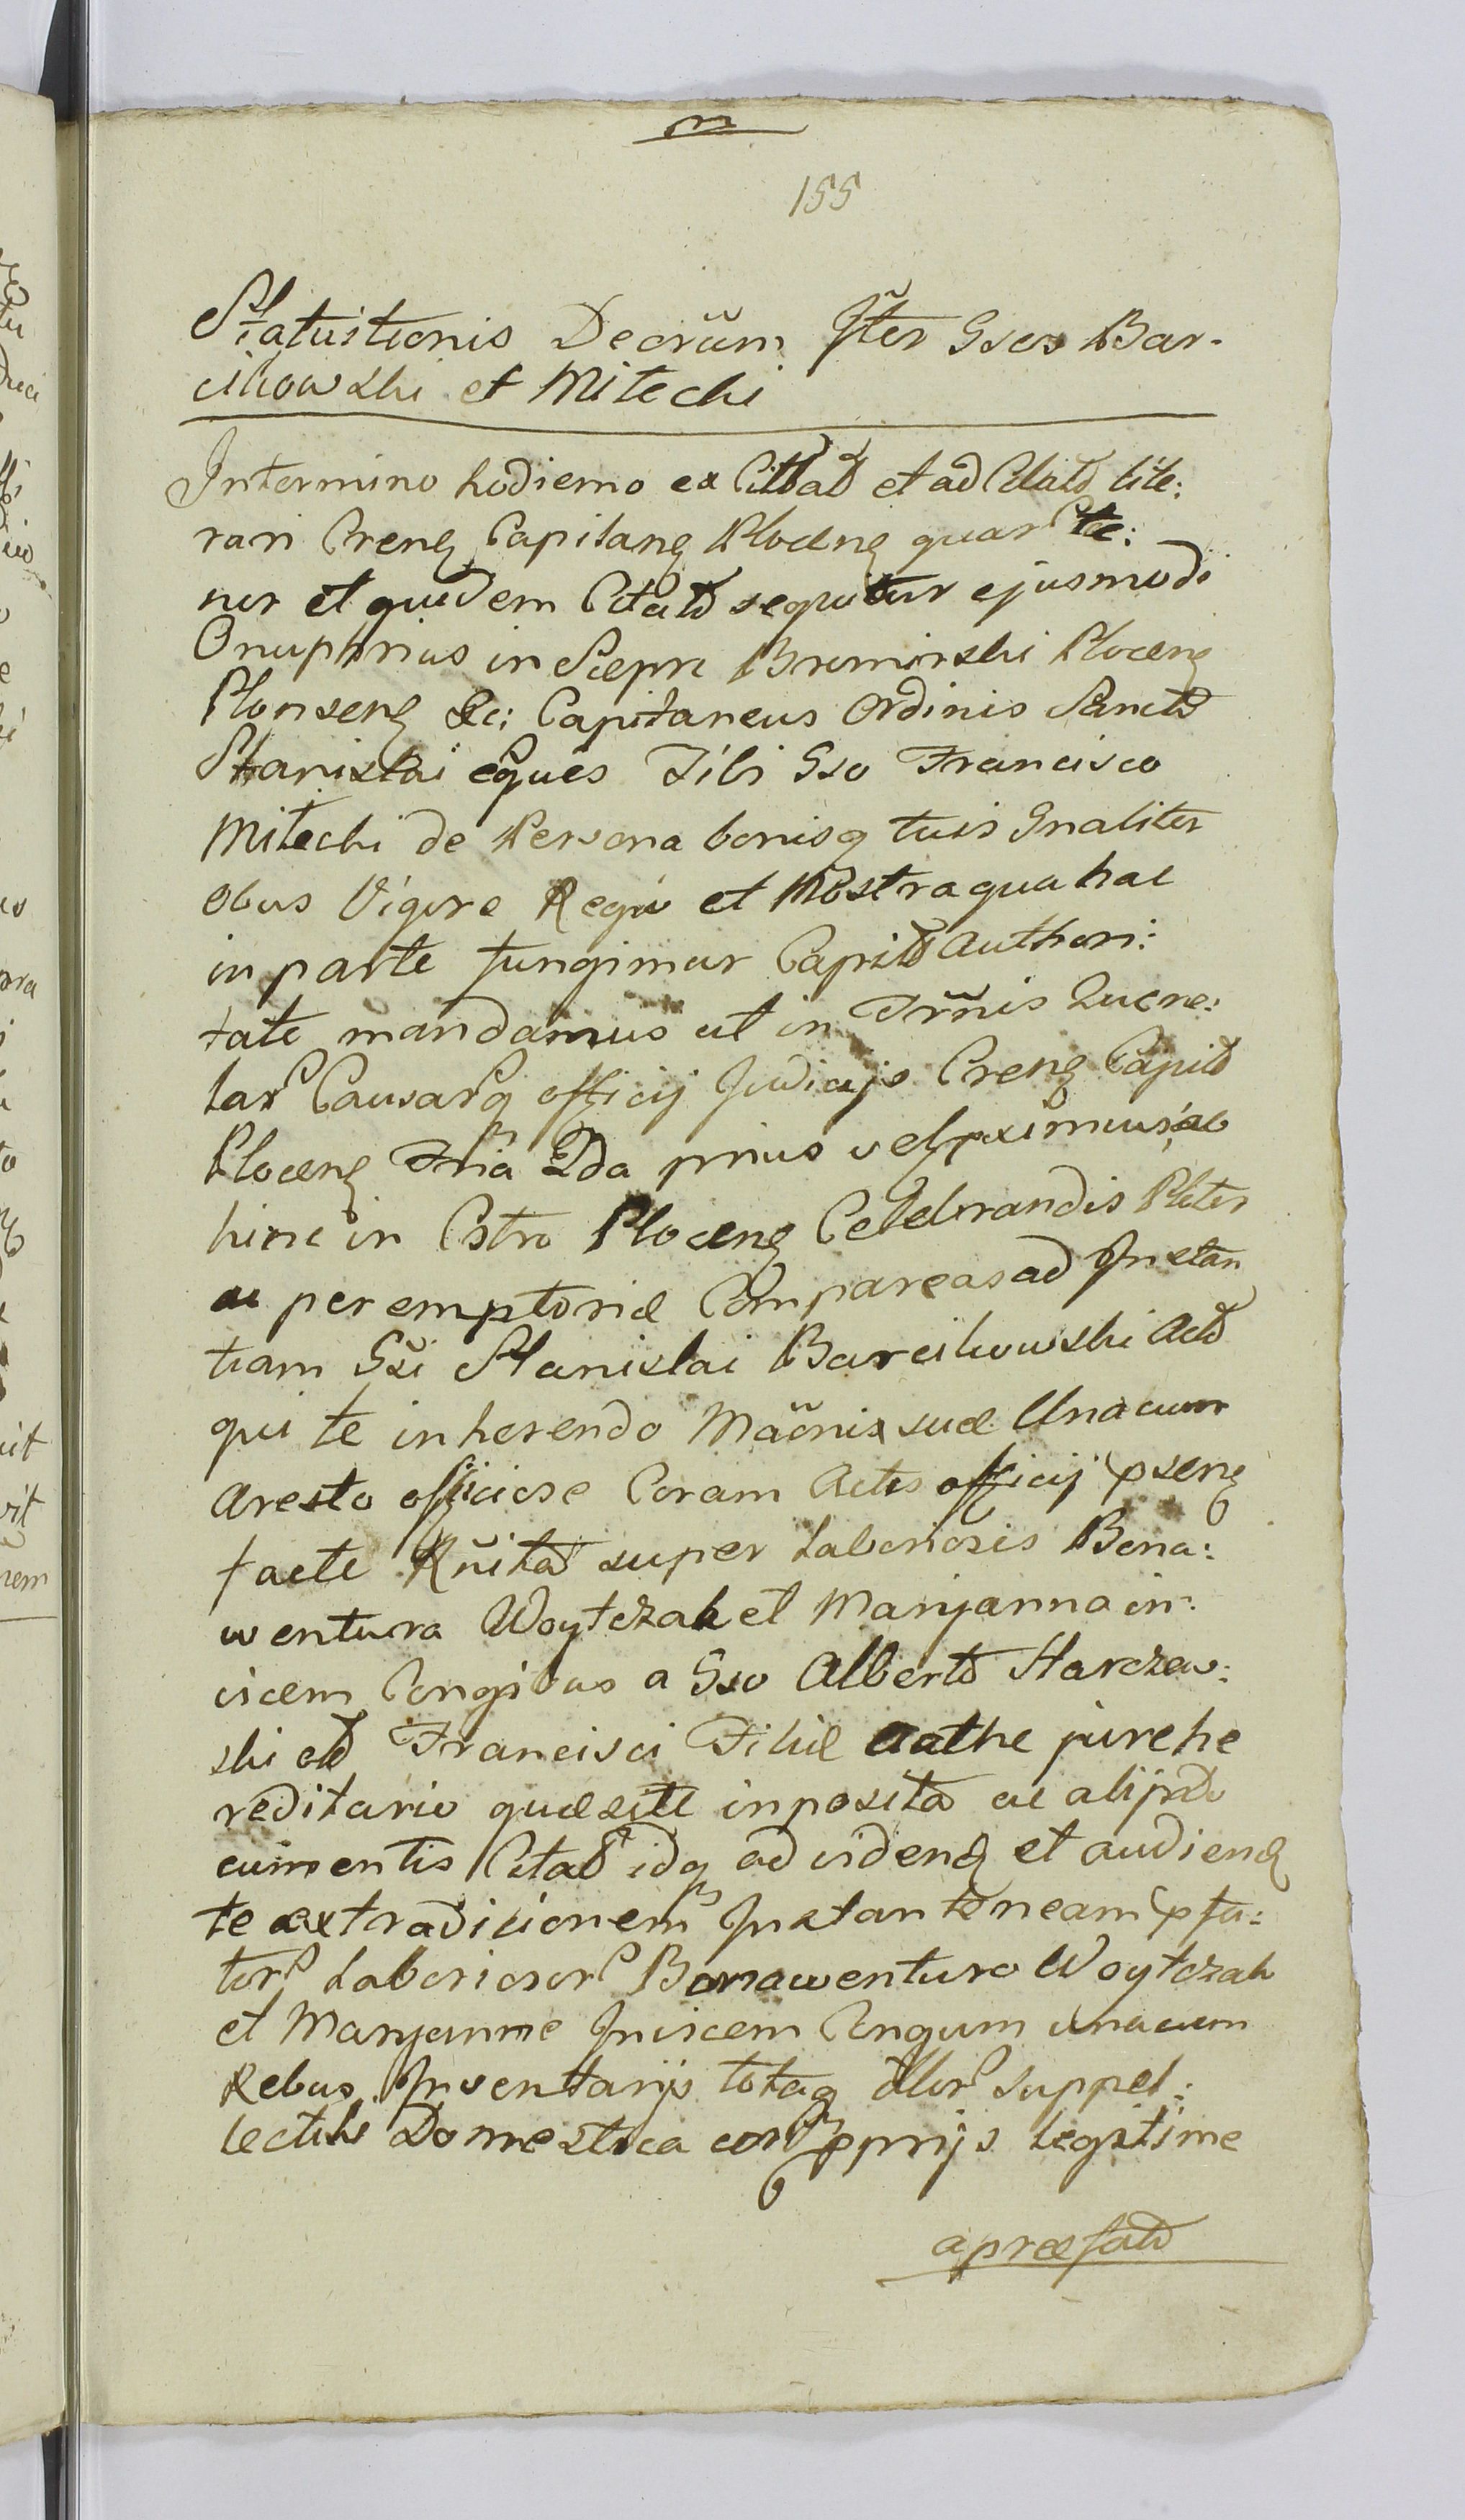 m
155
Statuitionis Decrũm Jt̃er Gsos Bar-
cikowski et Mitecki
Intermino hodierno ex Cittað et ad Citatð lite:
rari Crenꝫ Capitanꝫ Plocenꝫ quar te:
nor et quidem Citatð sequitur ejusmodi
Onuphrius in Sciepre Bromirski Plocenꝫ
Plonsenꝫ &c: Capitaneus Ordinis Sanctð
Stanislai eques Tibi Gso Francisco
Mitecki de Persona bonisq tuis Gnaliter
obus Vigore Regia et Nostra qua hac
in parte fungimur Capitð authori:
tate mandamus ut in Trm̃is Quere:
lar Causarq officij Judicijs Crenꝫ Capitð
Plocenꝫ Fria 2da prius vel pximius ab
hinc in Cstro Plocenꝫ Celebrandis Pliter
ac peremptorie Compareas ad Jnstan
tiam Gsi Stanislai Barcikowski Actð
qui te inherendo Mãonis suæ Unacum
Aresto officiose Coram Actis officij pseng
facte Rñita super Laboriosis Bona:
wentura Woytczak et Maryanna in:
vicem Congibus a Gso Alberto Harczew:
ski olð Francisci Filiæ Aathe jure he
reditario quæsite inposita ac alijs do
cumentis Citað idq ad videnð et audienð
te extradicionem Jnstantaneam pfa:
tor Laborioror Bonawentura Woytczak
et Maryanne Jnvicem Congum unacum
Rebus Jnventarijs totaq illor suppel:
lectili Domestica eorq pprijs legitime
a præfatð